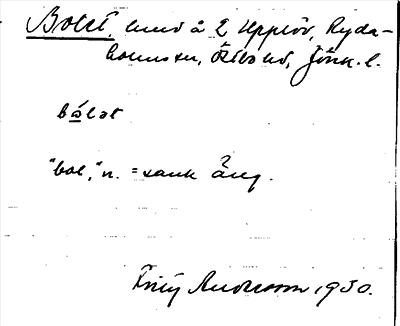 Bolet, lund å 2 Uppløv, Ryda-
holms sn, Östbo hd, Jönk. l.
bålət
"bol," n. = sank äng.
Frity Andersson 1930.